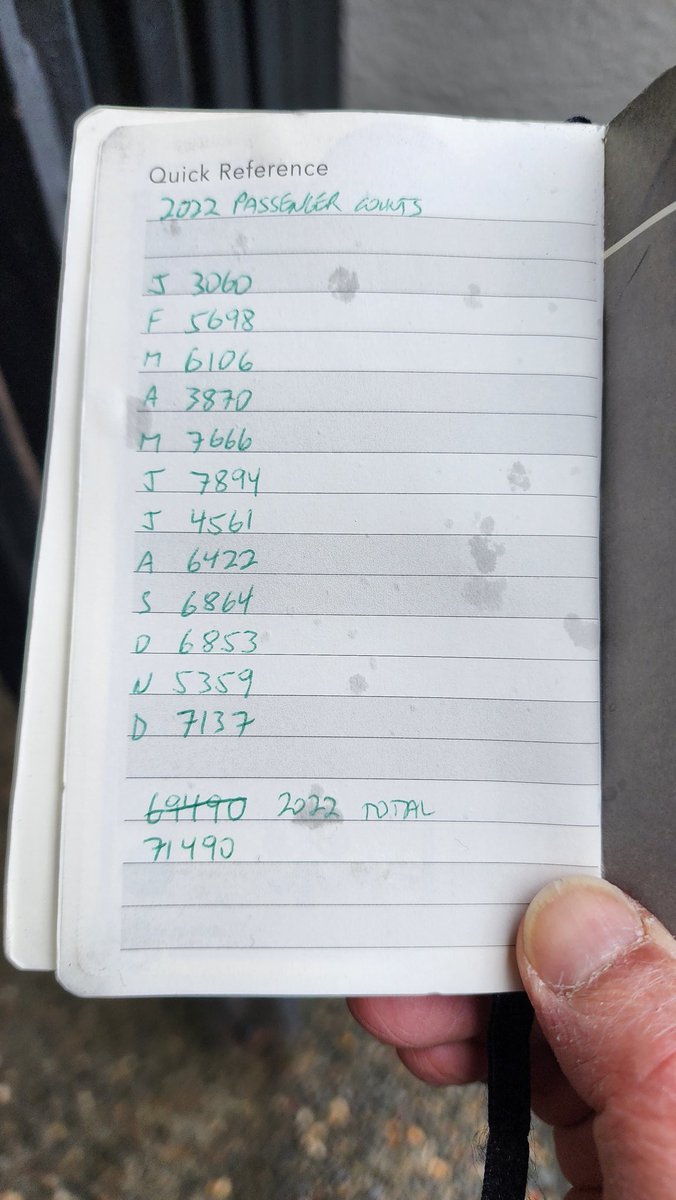 Quick Reference
2022 PASSENGER COUNTS
J 3060
F 5698
M 6106
A 3870
M 7666
J 7894
J 4561
A 6422
S 6864
O 6853
N 5359
D 7137
69490 2022 TOTAL
71490